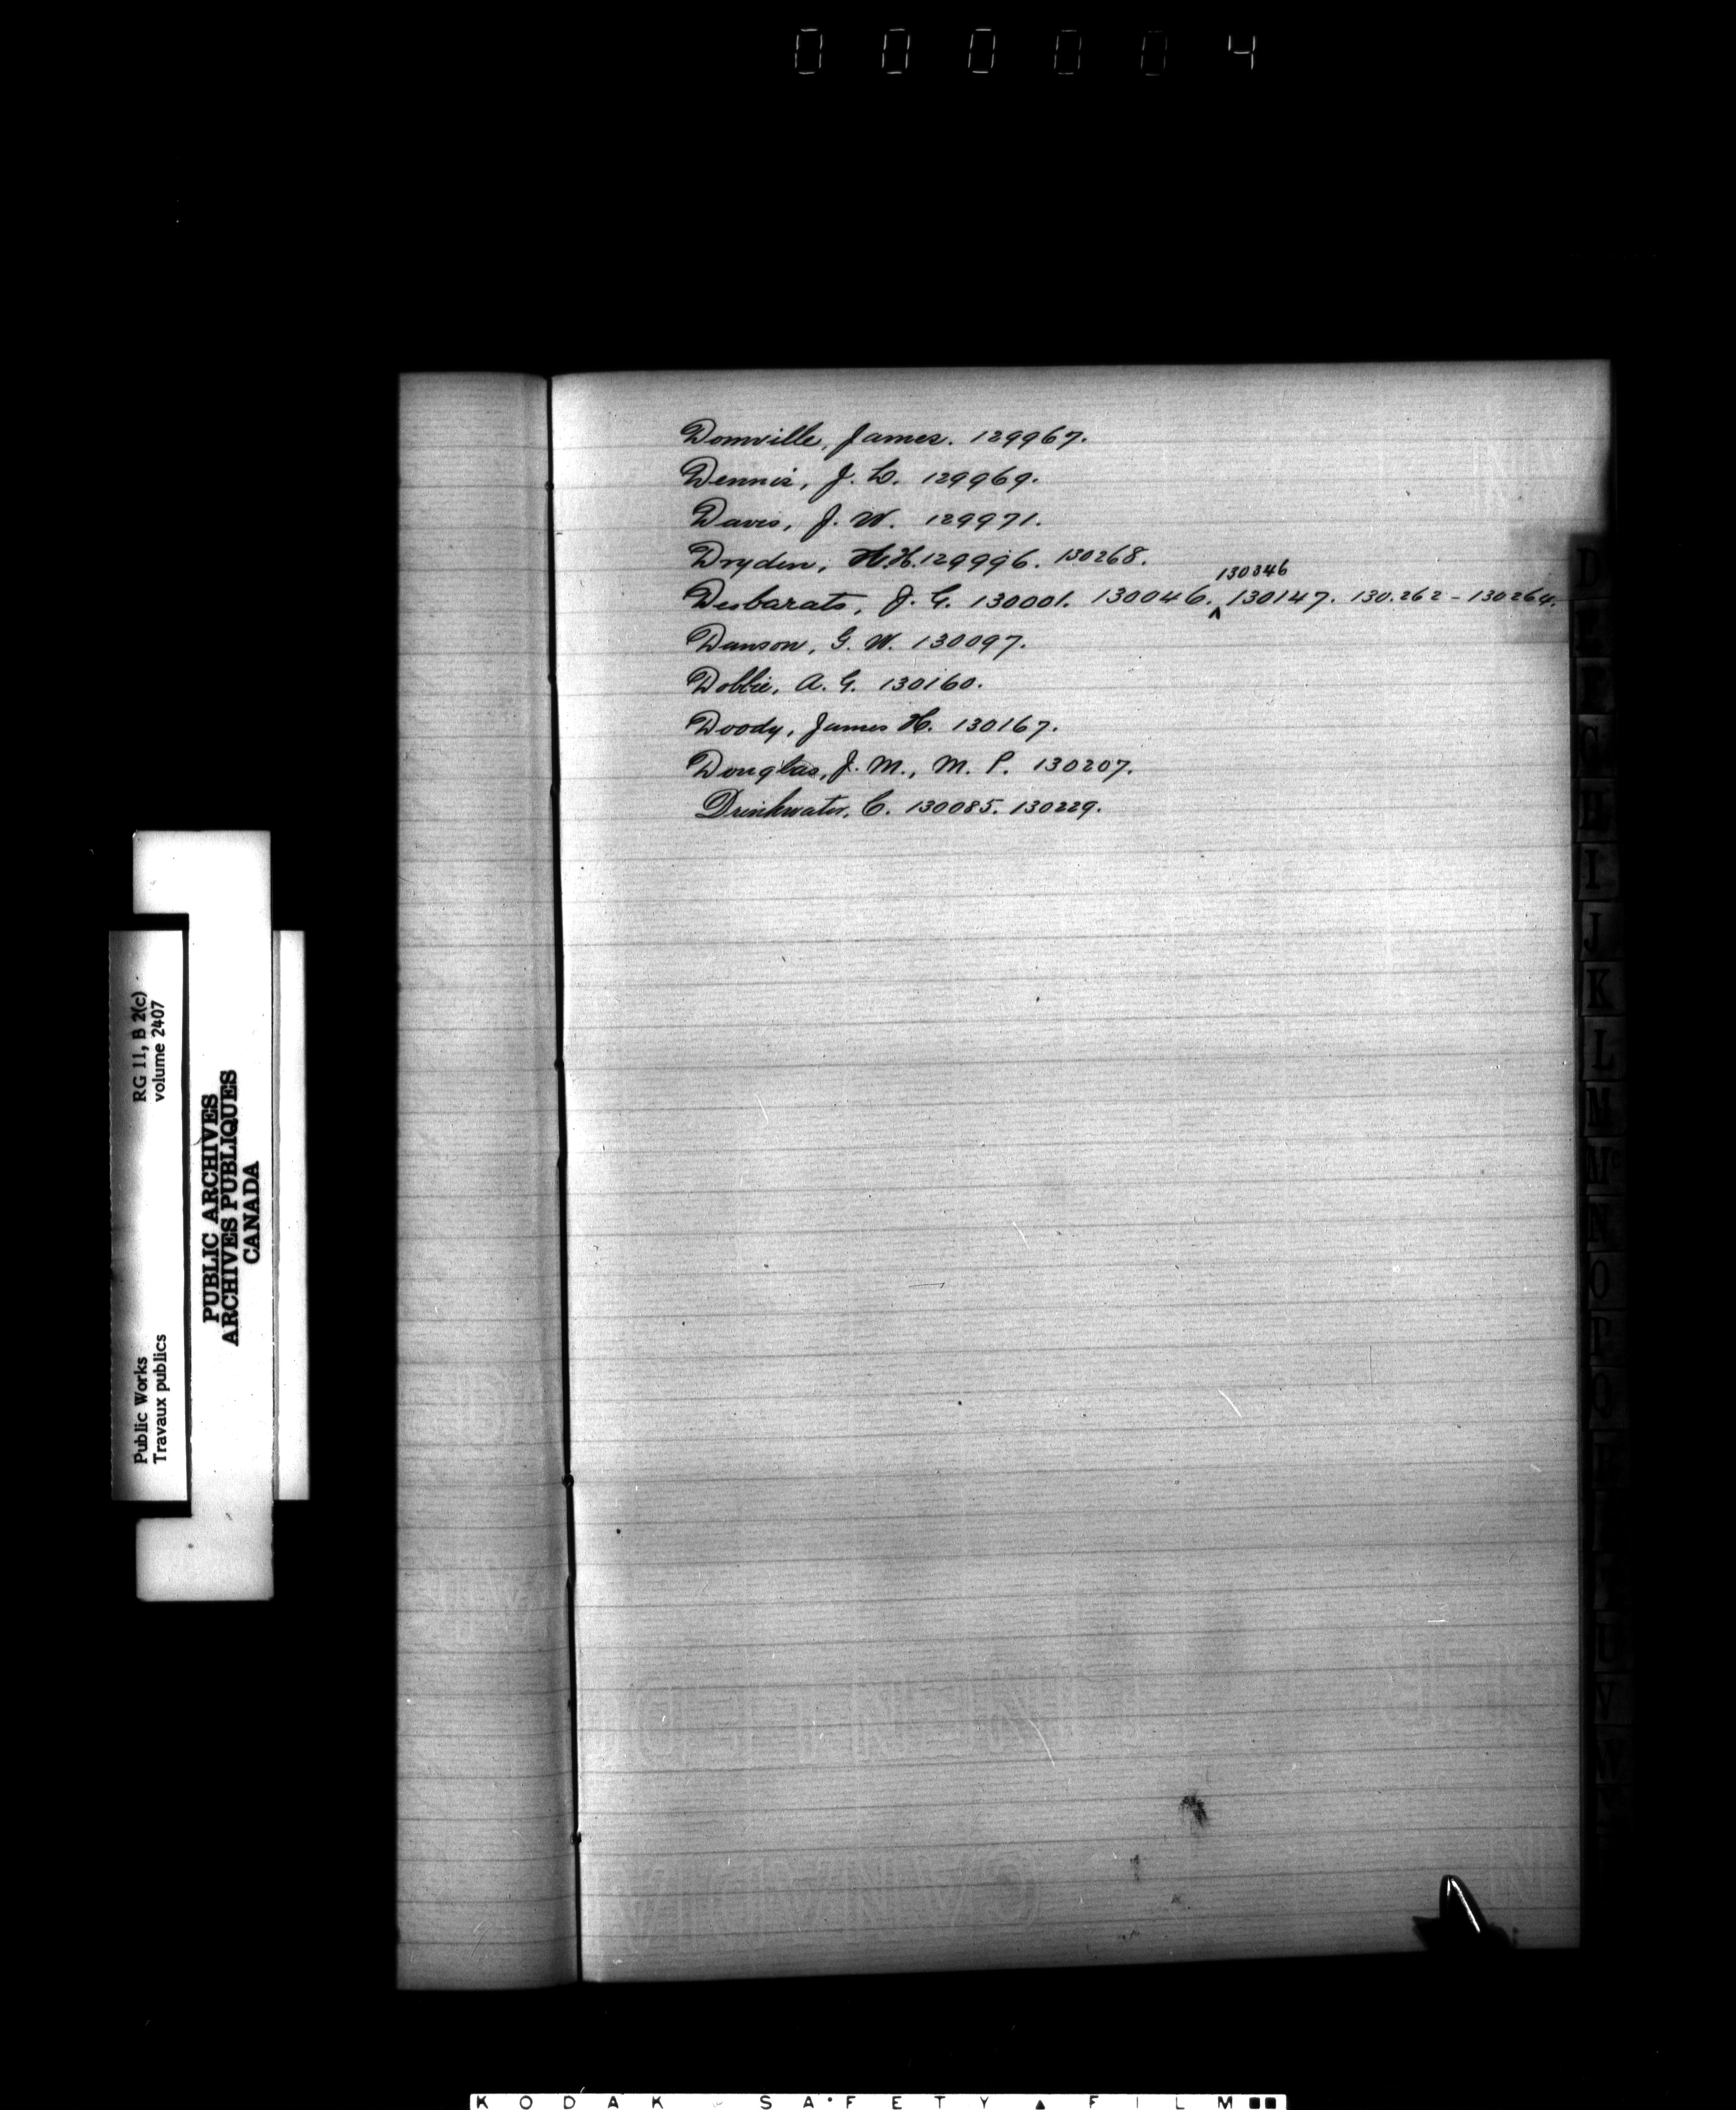 000004
Domville, James. 129967.
Dennis, J. L. 129969.
Davis, J. W. 129971.
Dryden, H.H. 129996. 130268.
130346
Desbarats, J. G. 130001. 130046. ^ 130147. 130.262 - 130264.
Danson, G. W. 130097.
Dobbie, A. G. 130160.
Doody, James H. 130167.
Douglas, J. M., M. P. 130207.
Drinkwater, C. 130085. 130229.
D
H
I
J
K
L
M
N
O
P
Q
U
V
W
RG 11, B 2(c)
volume 2407
Public Works
Travaux publics
PUBLIC ARCHIVES
ARCHIVES PUBLIQUES
CANADA
KODAK SAFETY ▲ FILM